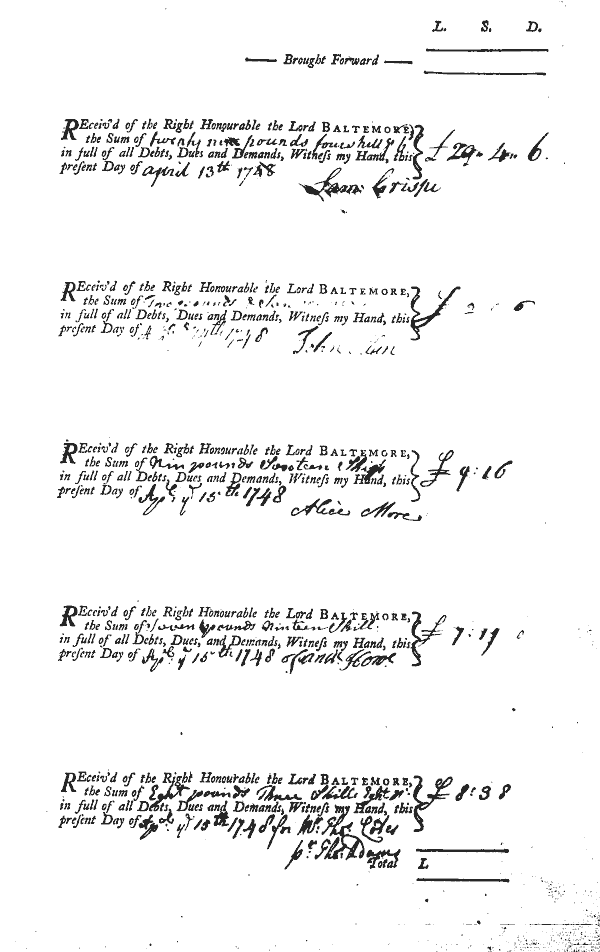 L. S. D.
Brought Forward
REceiv'd of the Right Honourable the Lord BALTEMORE,
the Sum of twenty nine pounds four shill & 6
in full of all Debts, Dues and Demands, Witneſs my Hand, this
preſent Day of april 13th 1748
£ 29 .. 4 .. 6.
Sam: Crispe
REceiv'd of the Right Honourable the Lord BALTEMORE,
the Sum of Two pounds
in full of all Debts, Dues and Demands, Witneſs my Hand, this
preſent Day of 1748
£ 2 6
John
REceiv'd of the Right Honourable the Lord BALTEMORE,
the Sum of Nin pounds Sixteen Shigs
in full of all Debts, Dues and Demands, Witneſs my Hand, this
preſent Day of Apl ye 15th 1748
£ 9 : 16
Alice More
REceiv'd of the Right Honourable the Lord BALTEMORE,
the Sum of Seven pounds Ninteen Shill
in full of all Debts, Dues, and Demands, Witneſs my Hand, this
preſent Day of Apl ye 15th 1748
£ 7 : 19 0
REceiv'd of the Right Honourable the Lord BALTEMORE,
the Sum of Eght pounds Three Shills
in full of all Debts, Dues and Demands, Witneſs my Hand, this
preſent Day of Apl ye 15th 1748 for Mr. Thos. Coles
£ 8 : 3 8
pr. Thos. Adams
Total L